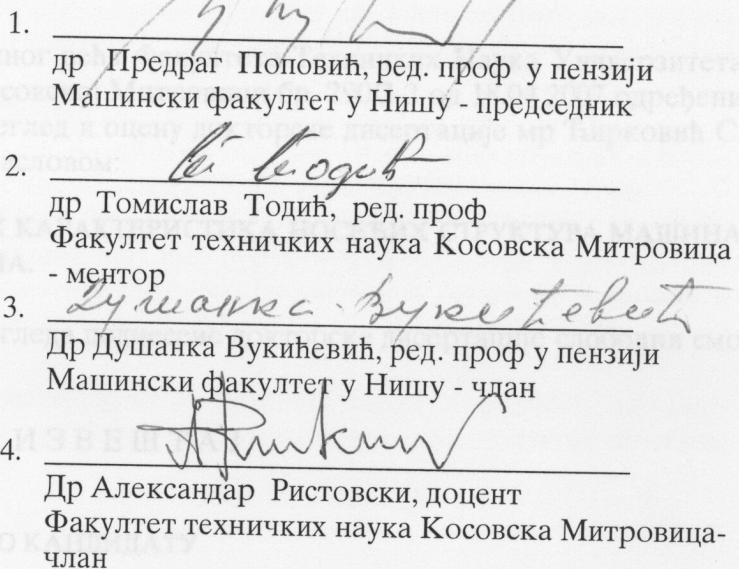 1.
др Предраг Поповић, ред. проф у пензији
Машински факултет у Нишу - председник
2.
др Томислав Тодић, ред. проф
Факултет техничких наука Косовска Митровица
- ментор
3. Душанка Вукићевић
Др Душанка Вукићевић, ред. проф у пензији
Машински факултет у Нишу - члан
4.
Др Александар Ристовски, доцент
Факултет техничких наука Косовска Митровица-
члан